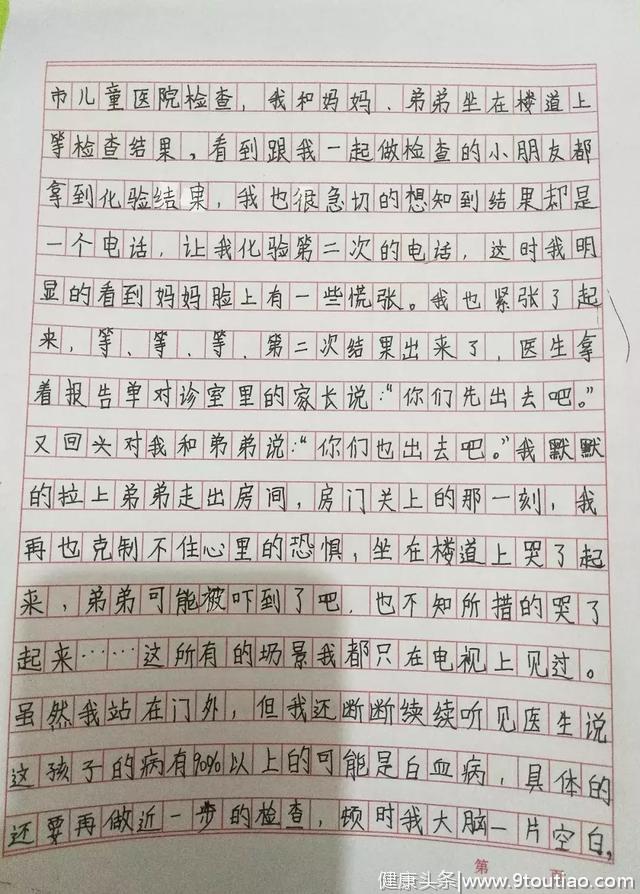 市儿童医院检查，我和妈妈、弟弟坐在楼道上
等检查结果，看到跟我一起做检查的小朋友都
拿到化验结果，我也很急切的想知到结果却是
一个电话，让我化验第二次的电话，这时我明
显的看到妈妈脸上有一些慌张。我也紧张了起
来，等、等、等、第二次结果出来了，医生拿
着报告单对诊室里的家长说：“你们先出去吧。”
又回头对我和弟弟说：“你们也出去吧。”我默默
的拉上弟弟走出房间，房门关上的那一刻，我
再也克制不住心里的恐惧，坐在楼道上哭了起
来，弟弟可能被吓到了吧，也不知所措的哭了
起来……这所有的场景我都只在电视上见过。
虽然我站在门外，但我还断断续续听见医生说
这孩子的病有90%以上的可能是白血病，具体的
还要再做近一步的检查，顿时我大脑一片空白，
第 页
健康头条|www.9toutiao.com